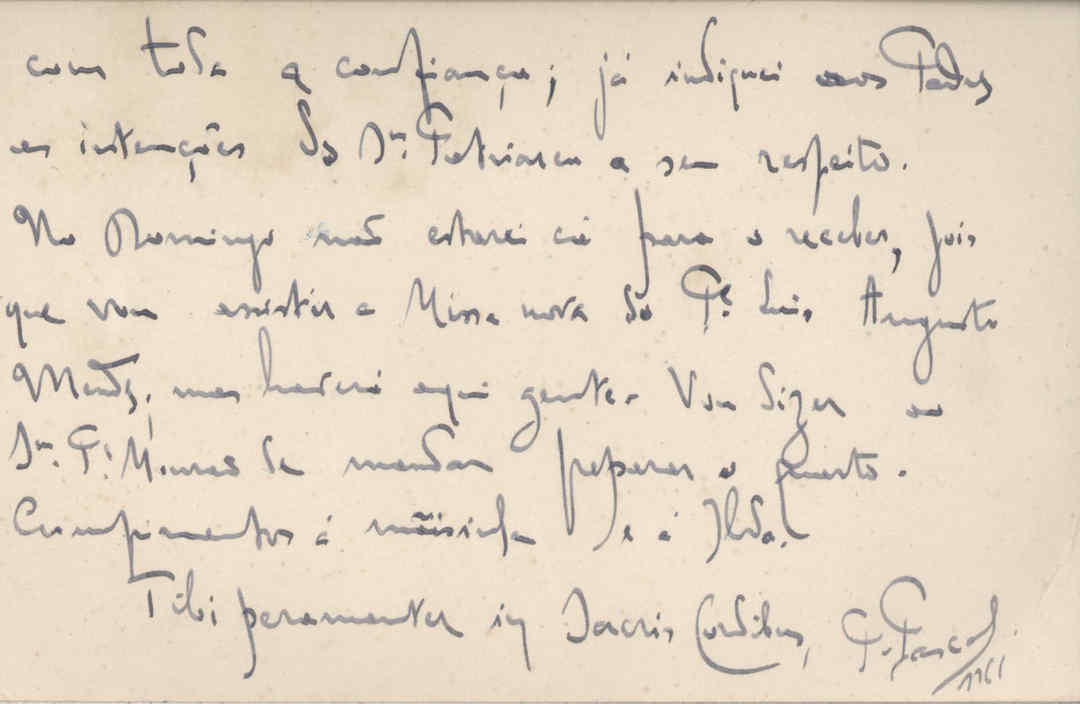 com toda a confiança; já indiquei aos Padres
as intenções do Sr. Patriarca a seu respeito.
No Domingo não estarei cá para o receber, pois
que vou assistir à Missa nova do P.e Luis Augusto
Mendes, mas haverá aqui gente. Vou dizer ao
Sr. P.e Mourão de mandar preparar o quarto.
Cumprimentos á mãisinha e á Ilda.
Tibi peramenter in Sacris Cordibus, P. Pascal
1961